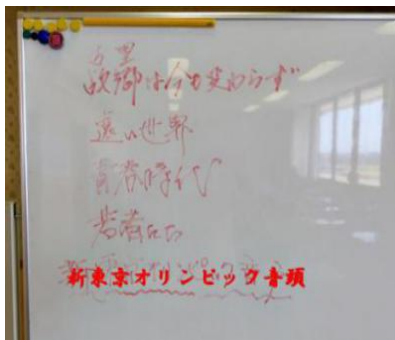 故郷は今も変わらず
遠い世界
青春時代
若者たち
新東京オリンピック音頭